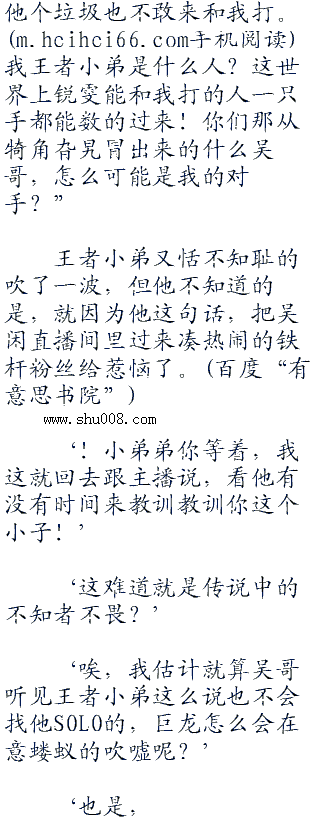 他个垃圾也不敢来和我打。
(m.hcihci66.com手机阅读)
我王者小弟是什么人?这世
界上锐雯能和我打的人一只
手都能数的过来!你们那从
犄角旮旯冒出来的什么吴
哥,怎么可能是我的对
手?”
王者小弟又恬不知耻的
吹了一波,但他不知道的
是,就因为他这句话,把吴
闲直播间里过来凑热闹的铁
杆粉丝给惹恼了。(百度“有
意思书院”)
www.shu008.com
‘!小弟弟你等着,我
这就回去跟主播说,看他有
没有时间来教训教训你这个
小子!’
‘这难道就是传说中的
不知者不畏?’
‘唉,我估计就算吴哥
听见王者小弟这么说也不会
找他SOLO的,巨龙怎么会在
意蝼蚁的吹嘘呢?’
‘也是,